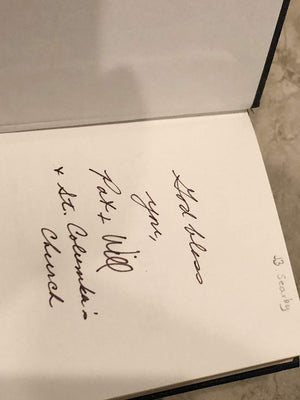 B. Searby
God bless
you,
Pat + Will
+ St. Columba's
Church